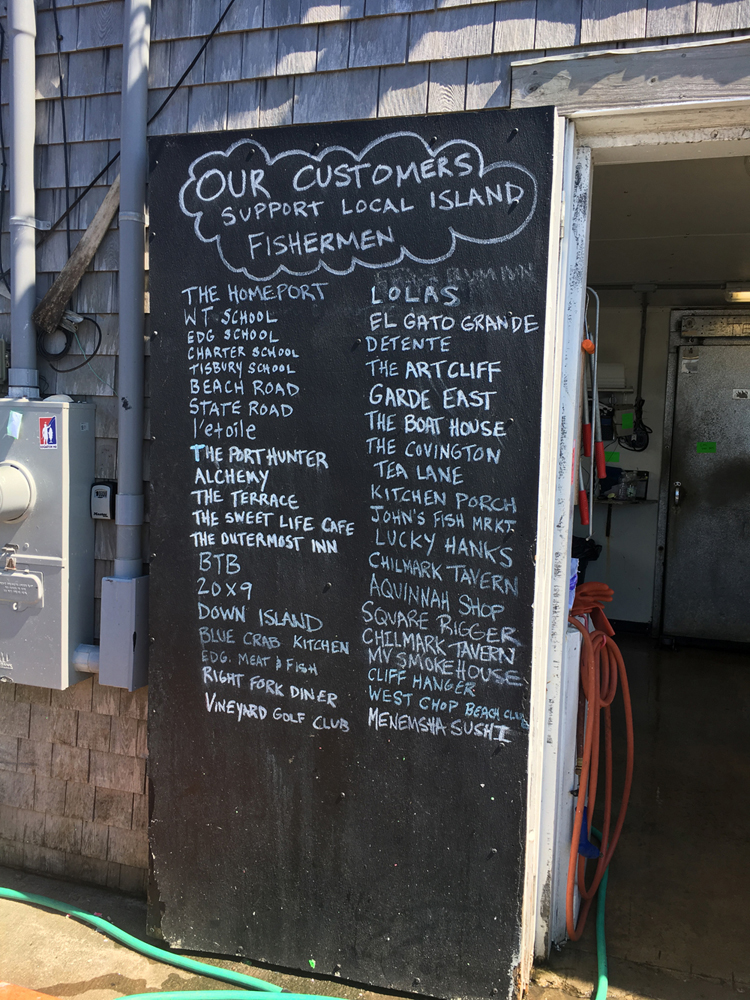 OUR CUSTOMERS
SUPPORT LOCAL ISLAND
FISHERMEN
THE HOMEPORT
WT SCHOOL
EDG SCHOOL
CHARTER SCHOOL
TISBURY SCHOOL
BEACH ROAD
STATE ROAD
l'etoile
THE PORT HUNTER
ALCHEMY
THE TERRACE
THE SWEET LIFE CAFE
THE OUTERMOST INN
BTB
20x9
DOWN ISLAND
BLUE CRAB KITCHEN
EDG. MEAT & FISH
RIGHT FORK DINER
VINEYARD GOLF CLUB
LOLAS
EL GATO GRANDE
DETENTE
THE ART CLIFF
GARDE EAST
THE BOAT HOUSE
THE COVINGTON
TEA LANE
KITCHEN PORCH
JOHN'S FISH MRKT.
LUCKY HANKS
CHILMARK TAVERN
AQUINNAH SHOP
SQUARE RIGGER
CHILMARK TAVERN
MV SMOKEHOUSE
CLIFF HANGER
WEST CHOP BEACH CLUB
MENEMSHA SUSHI